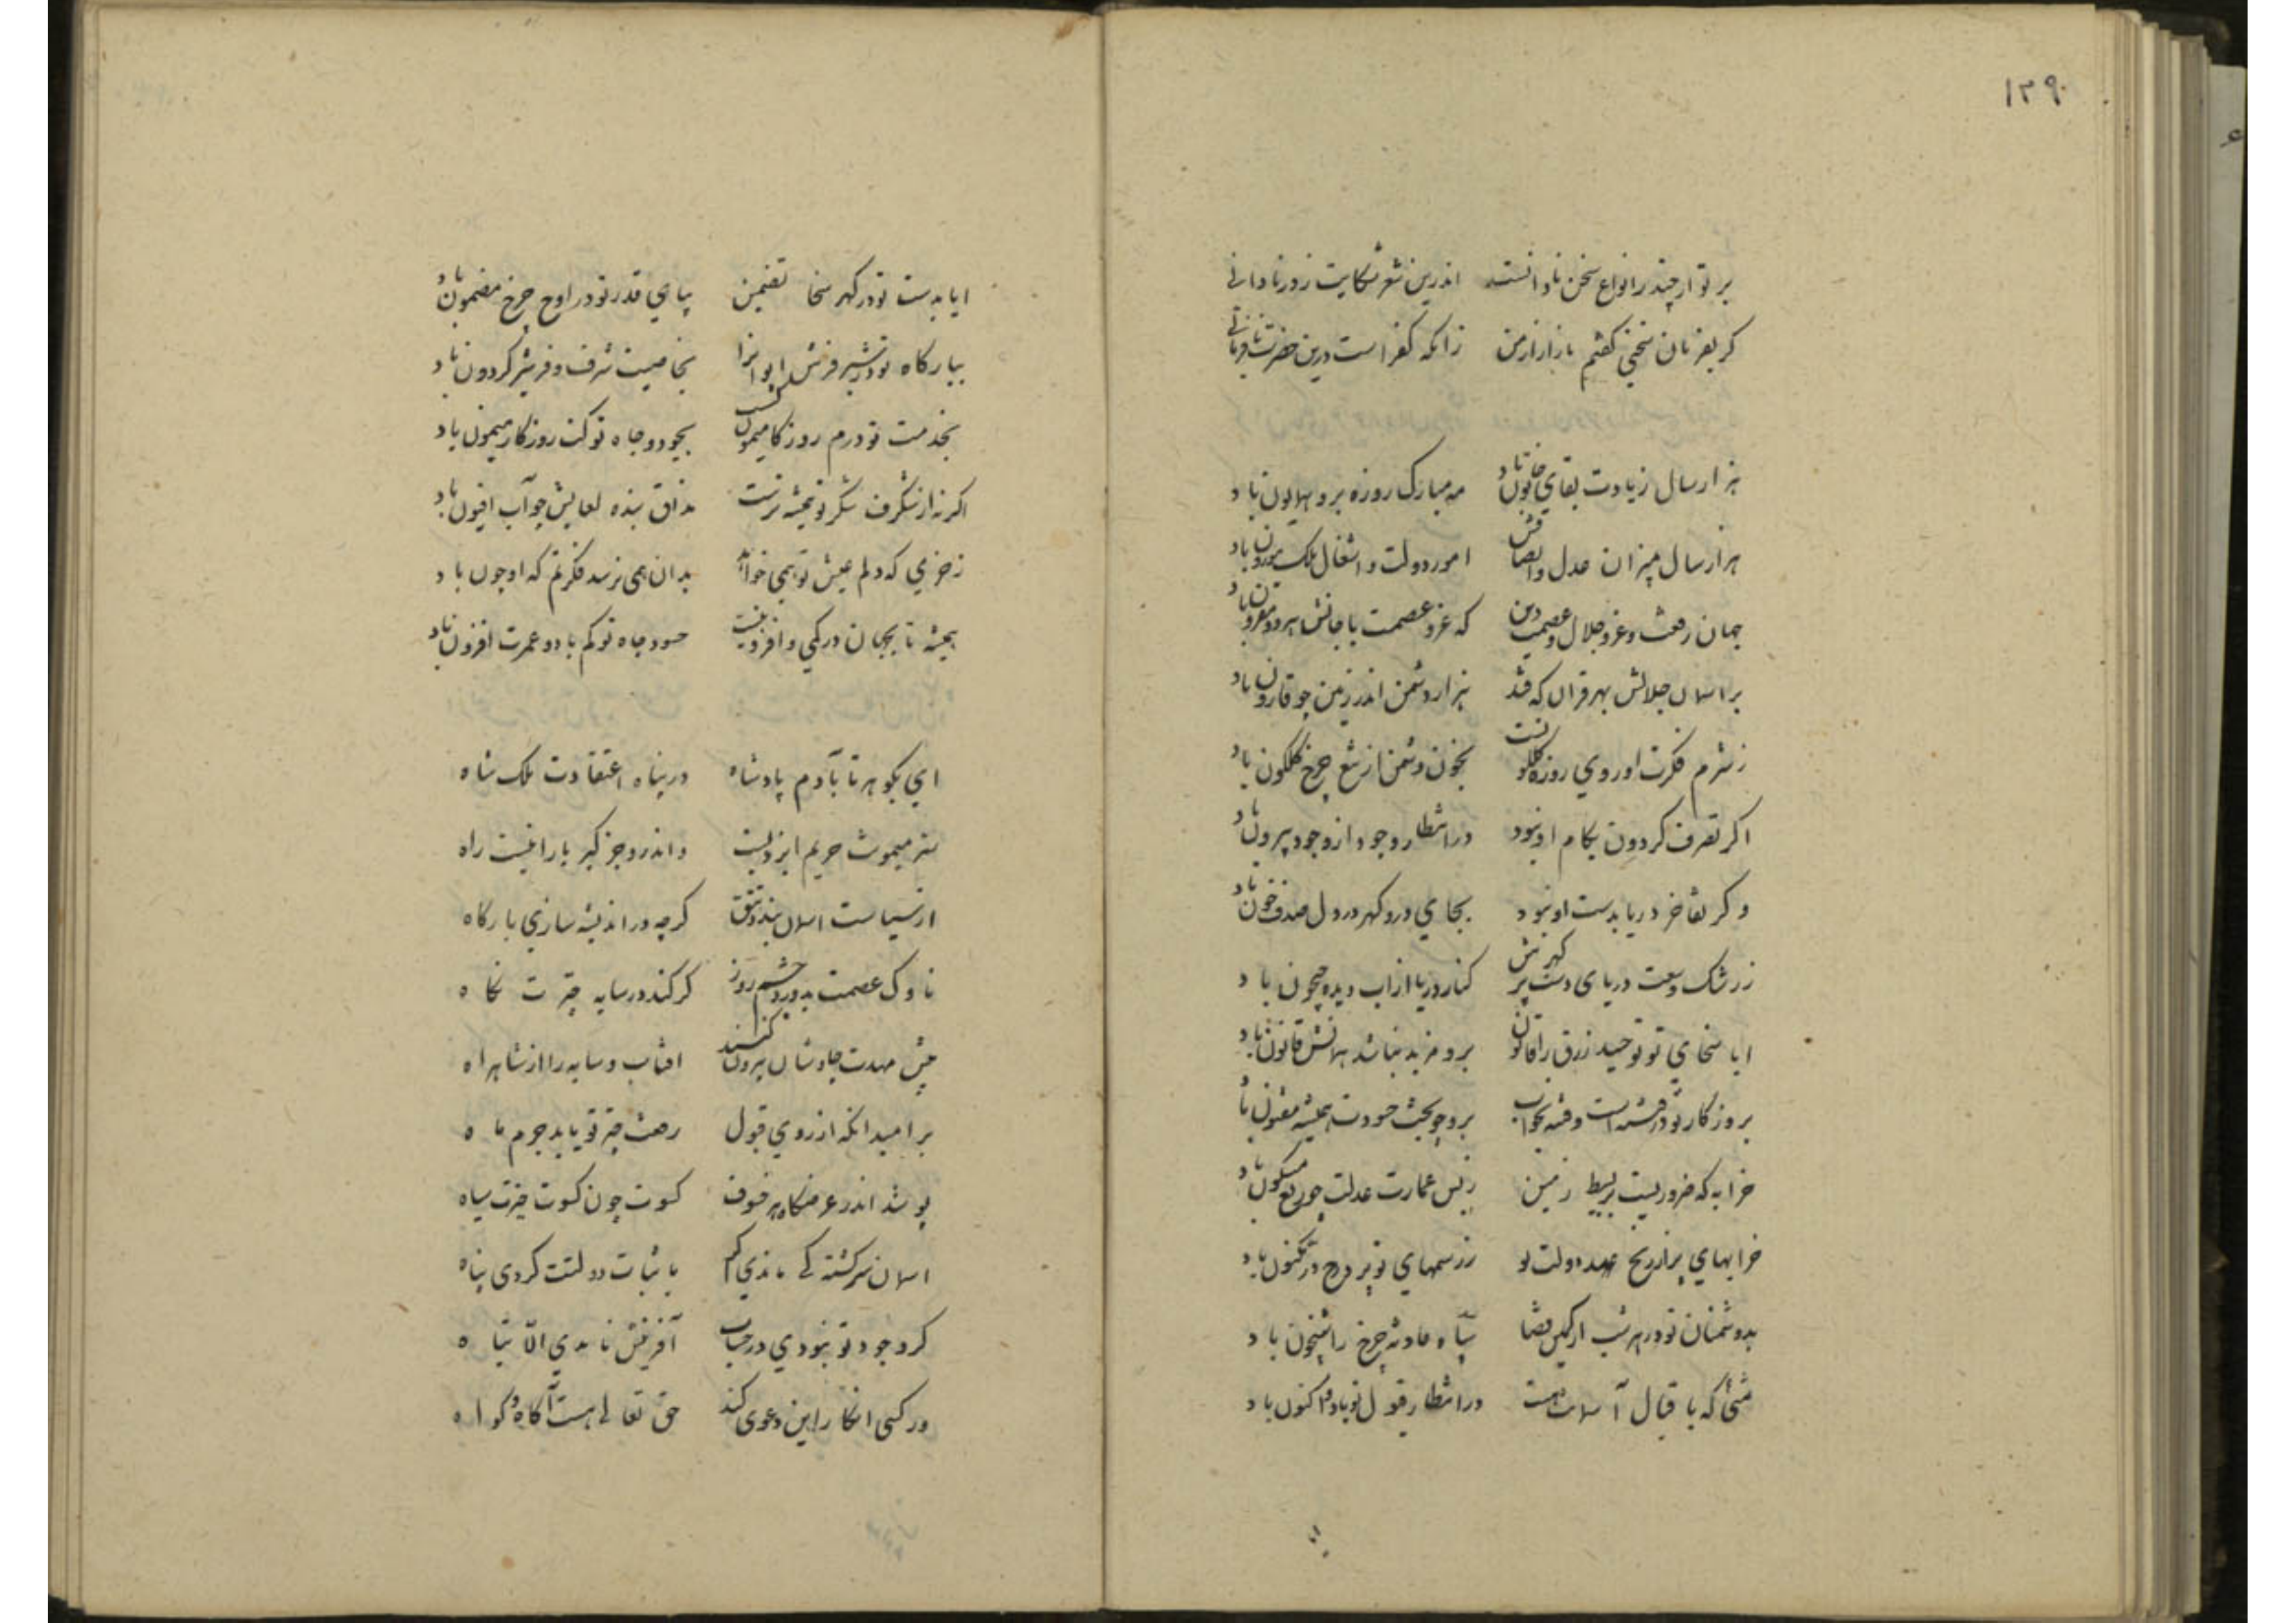 ۱۳۹
بر تو ار چند ز انواع سخن تاوانست اندرین شعر شکایت ز ور نادانی
کر بفرمان سخنی کفتم مازار از من زانکه کفر است درین حضرت نافرمانی
هزار سال زیادت بقای خاتون باد مه مبارک روزه برو همایون باد
هزار سال بمیزان عدل وانصافش امور دولت و اشغال ملک موزون باد
جهان رفعت و عز و جلال و عصمت دین که عز و عصمت با جانش هر دو مقرون باد
بر اسمان جلالش بهر قران که فتد هزار دشمن اندر زمین چو قارون باد
ز شرم فکرت او روی روزه کلکونست بخون دشمنش از تیغ چرخ کلکون باد
اکر تصرف کردون بکام او نبود در انتظار وجود از وجود بیرون باد
و کر تفاخر دریا بدست او نبود بجای در و کهر در دل صدف خون باد
ز رشک وسعت دریای دست پر کهرش کنار دریا از اب دیده جیحون باد
ایا سخای تو توحید رزق را قانون برو مزید نباشد همانش قانون باد
بروزکار تو در فتنه است و فتنه بخواب برو چو بخت حسودت همیشه مفتون باد
خرابه که ضروریست بر بسیط زمین ز بس عمارت عدلت چو ربع مسکون باد
خرابهای پر از رنج عهد دولت تو ز رسمهای تو پر درج در مکنون باد
بدشمنان تو در هر شب از کمین قضا سپاه حادثه چرخ را شبخون باد
شبی که باقبال آسمانت هست در انتظار قبول تو باد و اکنون باد
ایا بدست تو در کهر سخا تضمین بپای قدر تو در اوج چرخ مضمون باد
ببارکاه تو در شیر فرش ایوانرا بخاصیت شرف و فر شیر کردون باد
بخدمت تو درم روزکار میمون کشت بجود و جاه تو کت روزکار میمون باد
اکر نه از شکرف شکر تو همیشه ترست مذاق بنده لعابش چو آب افیون باد
ز خرمی که دلم عیش تو همی خواهد بدان همی نرسد فکرتم که او چون باد
همیشه تا بجهان در کمی و افزونیست حسود جاه تو کم باد و عمرت افزون باد
ای بکوهر تا بآدم پادشاه در پناه اعتقادت ملک شاه
ستر میمونت حریم ایزدیست واندرو جز کبریا را نیست راه
از سیاست اسمان بندد تتق کرچه در اندیشه سازی بارکاه
ناوک عصمت بدوزد چشم روز کر کند در سایه چترت نکاه
پیش مهدت چاوشان بیرون کنند افتاب و سایه را از شاهراه
بر امید انکه از روی قبول رفعت چتر تو یابد جرم ماه
پوشد اندر عرضکاه هر خسوف کسوت چون کسوت چترت سیاه
اسمان سرکشته کی ماندی کر باثبات دولتت کردی پناه
کر وجود تو نبودی در حساب آفرینش نامدی الا تباه
ور کسی انکار این دعوی کند حق تعالی هست آکاه و کواه